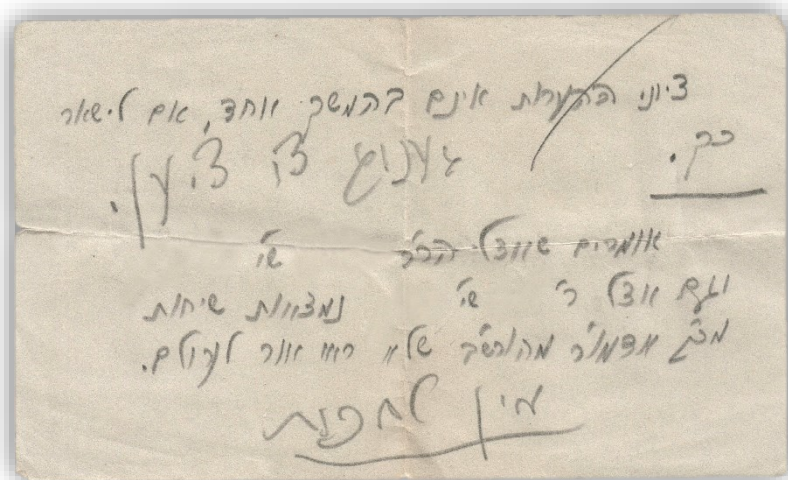 ציוני ההערות אינם בהמשך אחד, אם לישאר
כך.
גענוג צו ציען.
אומרים שאצל הר"ר שי'
וגם אצל ר' שי' נמצאות שיחות
מכ"ק אדמו"ר מהורש"ב שלא ראו אור לעולם.
אין